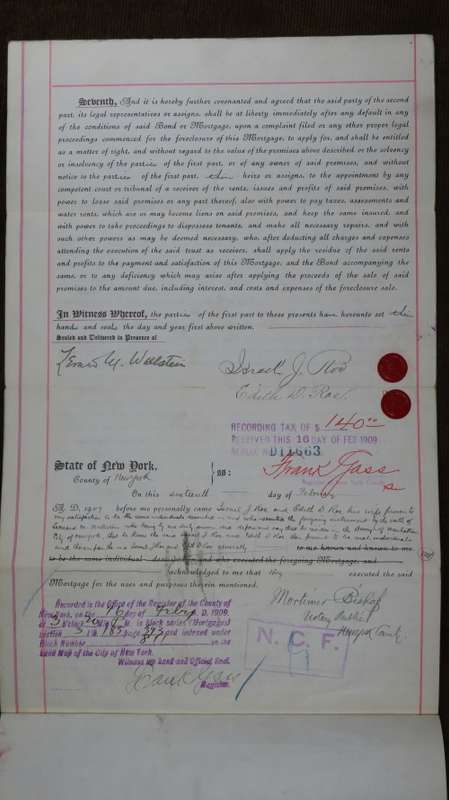 Seventh, And it is hereby further covenanted and agreed that the said party of the second
part, its legal representatives or assigns, shall be at liberty immediately after any default in any
of the conditions of said Bond or Mortgage, upon a complaint filed or any other proper legal
proceedings commenced for the foreclosure of this Mortgage, to apply for, and shall be entitled
as a matter of right, and without regard to the value of the premises above described, or the solvency
or insolvency of the parties of the first part, or of any owner of said premises, and without
notice to the parties of the first part, their heirs or assigns, to the appointment by any
competent court or tribunal of a receiver of the rents, issues and profits of said premises, with
power to lease said premises or any part thereof, also with power to pay taxes, assessments and
water rents, which are or may become liens on said premises, and keep the same insured, and
with power to take proceedings to dispossess tenants, and make all necessary repairs, and with
such other powers as may be deemed necessary, who, after deducting all charges and expenses
attending the execution of the said trust as receiver, shall apply the residue of the said rents
and profits to the payment and satisfaction of this Mortgage, and the Bond accompanying the
same, or to any deficiency which may arise after applying the proceeds of the sale of said
premises to the amount due, including interest, and costs and expenses of the foreclosure sale.
In Witness Whereof, the parties of the first part to these presents have hereunto set their
hands and seals the day and year first above written.
Sealed and Delivered in Presence of
Israel J. Roe
Edith D. Roe
RECORDING TAX OF $ 140.00
RECEIVED THIS 16 DAY OF FEB 1909
D11663
Frank Gass
State of New York,
County of New York
ss:
On this sixteenth day of February
A. D. 1909 before me personally came Israel J Roe and Edith D Roe his wife
to me known and known to me
to be the same individual described in and who executed the foregoing Mortgage, and
acknowledged to me that they executed the said
Mortgage for the uses and purposes therein mentioned.
Mortimer Bishop
Notary Public
New York County
Recorded in the Office of the Register of the County of
New York, on the 16 day of Feby 1909,
in block series (Mortgages)
section and indexed under
Block Number on the
Land Map of the City of New York.
Witness my hand and Official Seal.
Frank Gass
Register.
N. C. F.